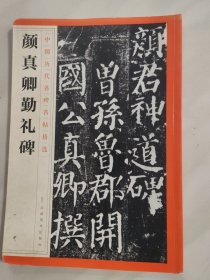 颜真卿勤礼碑
中国历代名碑名帖精选
顏君神道碑
曾孫魯郡開
國公真卿撰